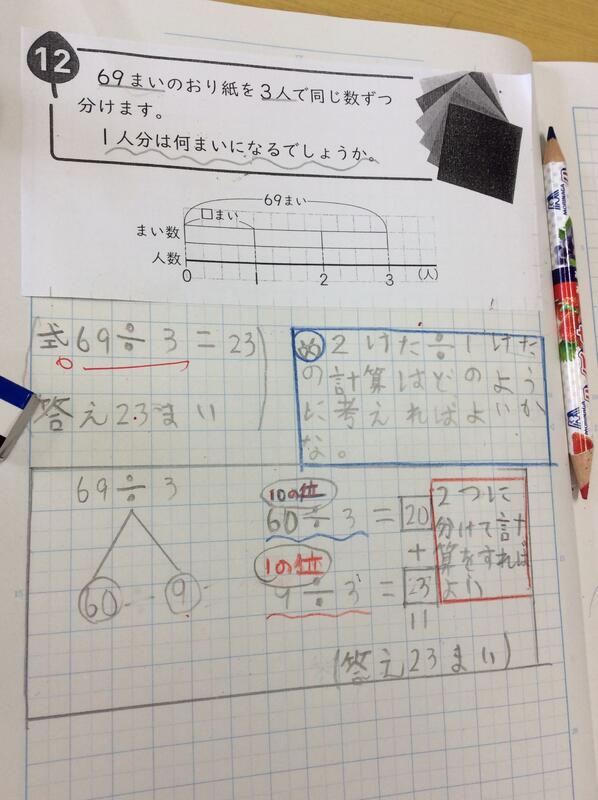 12
69まいのおり紙を3人で同じ数ずつ
分けます。
1人分は何まいになるでしょうか。
69まい
□まい
まい数
人数
0 1 2 3 (人)
式 69÷3=23
答え23まい
め 2けた÷1けた
の計算はどのよう
に考えればよいか
な。
69÷3
60 9
10の位
60÷3=20
+
1の位
9÷3=23
=
2つに
分けて計
算をすれば
よい
(答え23まい)
MORINAGA